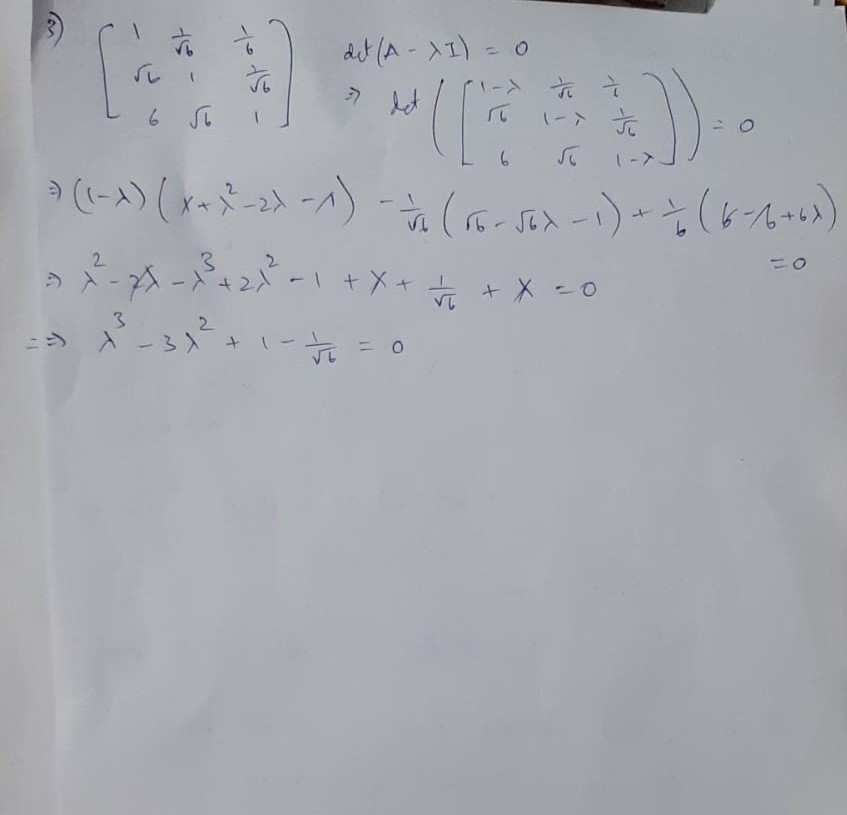 3) [ 1 1/√6 1/6 det(A - λI) = 0
√6 1 1/√6
6 √6 1 ] ⇒ det([ 1-λ 1/√6 1/6
√6 1-λ 1/√6
6 √6 1-λ ]) = 0
⇒ (1-λ)(1+λ²-2λ-1) - 1/√6 (√6-√6λ-1) + 1/6 (6-6+6λ) = 0
⇒ λ²-2λ-λ³+2λ²-1+λ+1/√6+λ = 0
=⇒ λ³-3λ²+1-1/√6 = 0